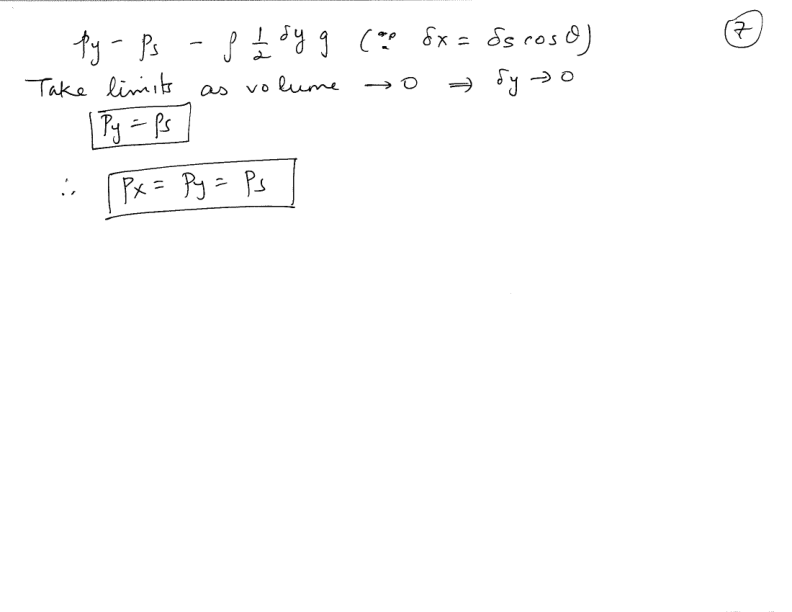 Py - Ps - ρ 1/2 δy g (∵ δx = δs cos θ)
7
Take limits as volume → 0 ⇒ δy → 0
Py = Ps
∴ Px = Py = Ps